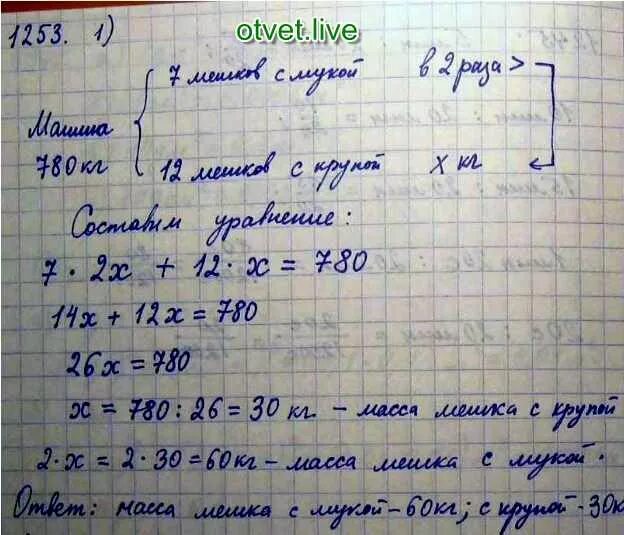 otvet.live
1253. 1)
7 мешков с мукой в 2 раза >
Машина
780 кг
12 мешков с крупой x кг
Составим уравнение:
7 · 2x + 12 · x = 780
14x + 12x = 780
26x = 780
x = 780 : 26 = 30 кг. – масса мешка с крупой
2 · x = 2 · 30 = 60 кг – масса мешка с мукой.
Ответ: масса мешка с мукой – 60 кг; с крупой - 30к